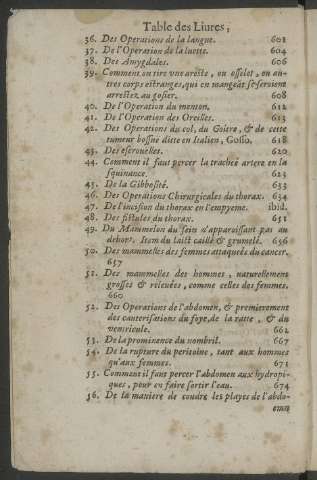 Table des Liures,
36. Des Operations de la langue. 602
37. De l'Operation de la luette. 604
38. Des Amygdales. 606
39. Comment on tire vne areste, ou osselet, ou au-
tres corps estranges, qui en mangeāt se seroient
arrestez au gosier. 608
40. De l'Operation du menton. 612
41. De l'Operation des Oreilles. 613
42. Des Operations du col, du Goitre, & de cette
tumeur bossuë ditte en Italien, Gosso. 618
43. Des escrouelles. 620
44. Comment il faut percer la trachée artere en la
squinance. 623
45. De la Gibbosité. 633
46. Des Operations Chirurgicales du thorax. 634
47. De l'incision du thorax en l'empyeme. ibid.
48. Des fistules du thorax. 651
49. Du Mammelon du sein n'apparoissant pas au
dehors. Item du laict caillé & grumelé. 656
50. Des mammelles des femmes attaquées du cancer.
657
51. Des mammelles des hommes, naturellement
grosses & releuées, comme celles des femmes.
660
52. Des Operations de l'abdomen, & premierement
des cauterisations du foye, de la ratte, & du
ventricule. 662
53. De la prominence du nombril. 667
54. De la rupture du peritoine, tant aux hommes
qu'aux femmes. 671
55. Comment il faut percer l'abdomen aux hydropi-
ques, pour en faire sortir l'eau. 674
56. De la maniere de coudre les playes de l'abdo-
men